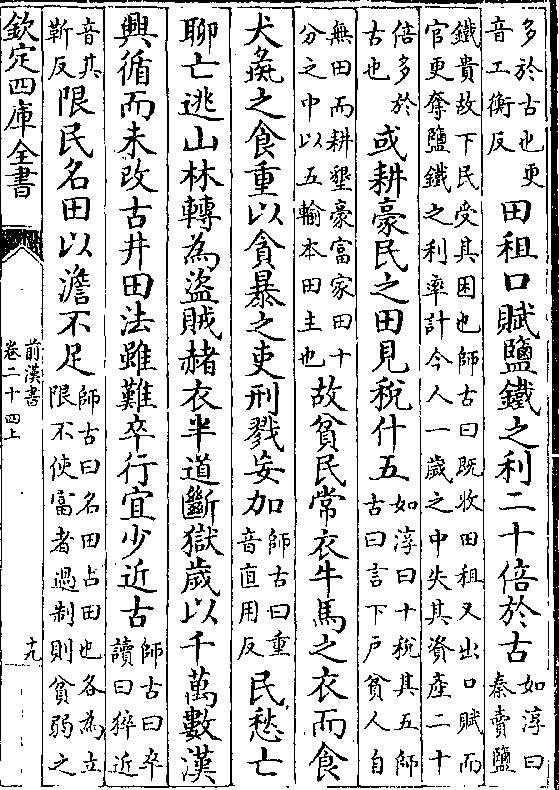 多於古也更
音工衡反
田租口賦鹽鐵之利二十倍於古
如淳曰
秦賣鹽
鐵貴故下民受其困也師古曰既收田租又出口賦而
官更奪鹽鐵之利率計今人一歲之中失其資產二十
倍多於
古也
或耕豪民之田見稅什五
如淳曰十稅其五師
古曰言下戶貧人自
無田而耕墾豪富家田十
分之中以五輸本田主也
故貧民常衣牛馬之衣而食
犬彘之食重以貪暴之吏刑戮妄加
師古曰重
音直用反
民愁亡
聊亡逃山林轉為盜賊赭衣半道斷獄歲以千萬數漢
興循而未改古井田法雖難卒行宜少近古
師古曰卒
讀曰猝近
音其
靳反
限民名田以澹不足
師古曰名田占田也各為立
限不使富者過制則貧弱之
欽定四庫全書
前漢書
卷二十四上
十九